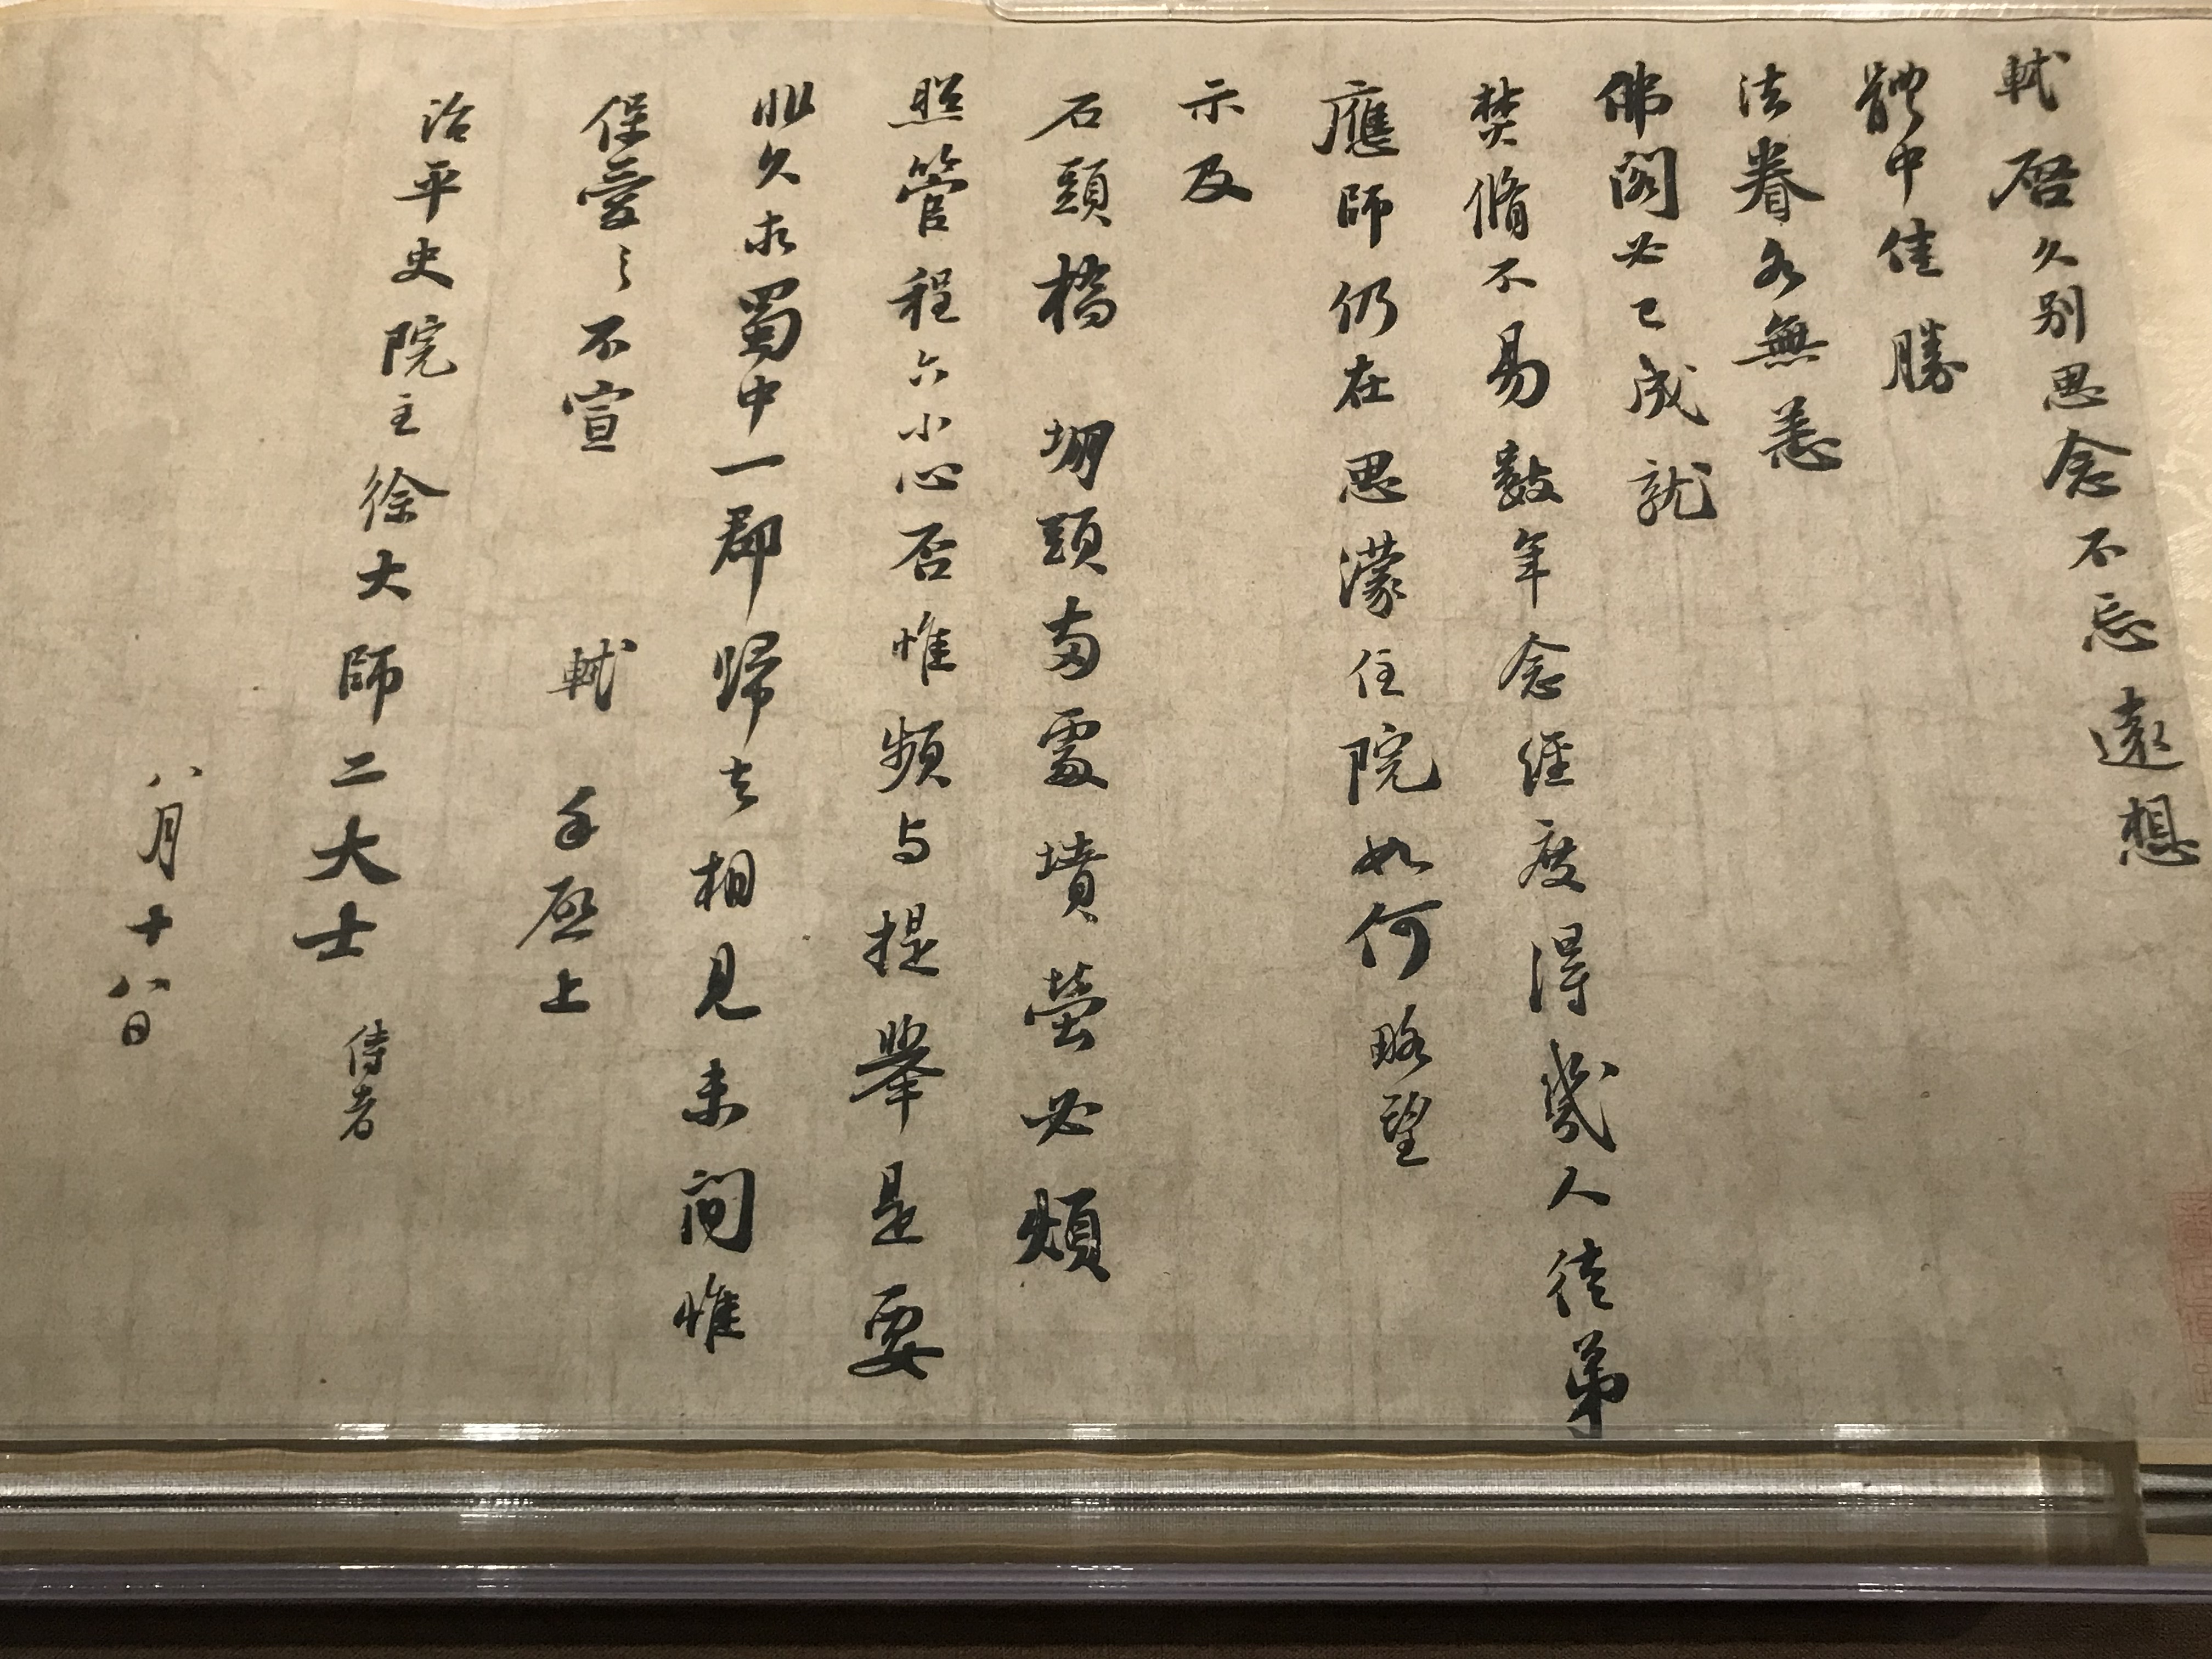 軾啓久別思念不忘遠想
體中佳勝
法眷各無恙
佛閣必已成就
焚脩不易數年念經度得幾人徒弟
應師仍在思濛住院如何略望
示及
石頭橋堋頭兩處墳塋必煩
照管程六小心否惟頻与提舉是要
非久求蜀中一郡歸去相見未間惟
保愛之不宣軾手啓上
治平史院主徐大師二大士侍者
八月十八日